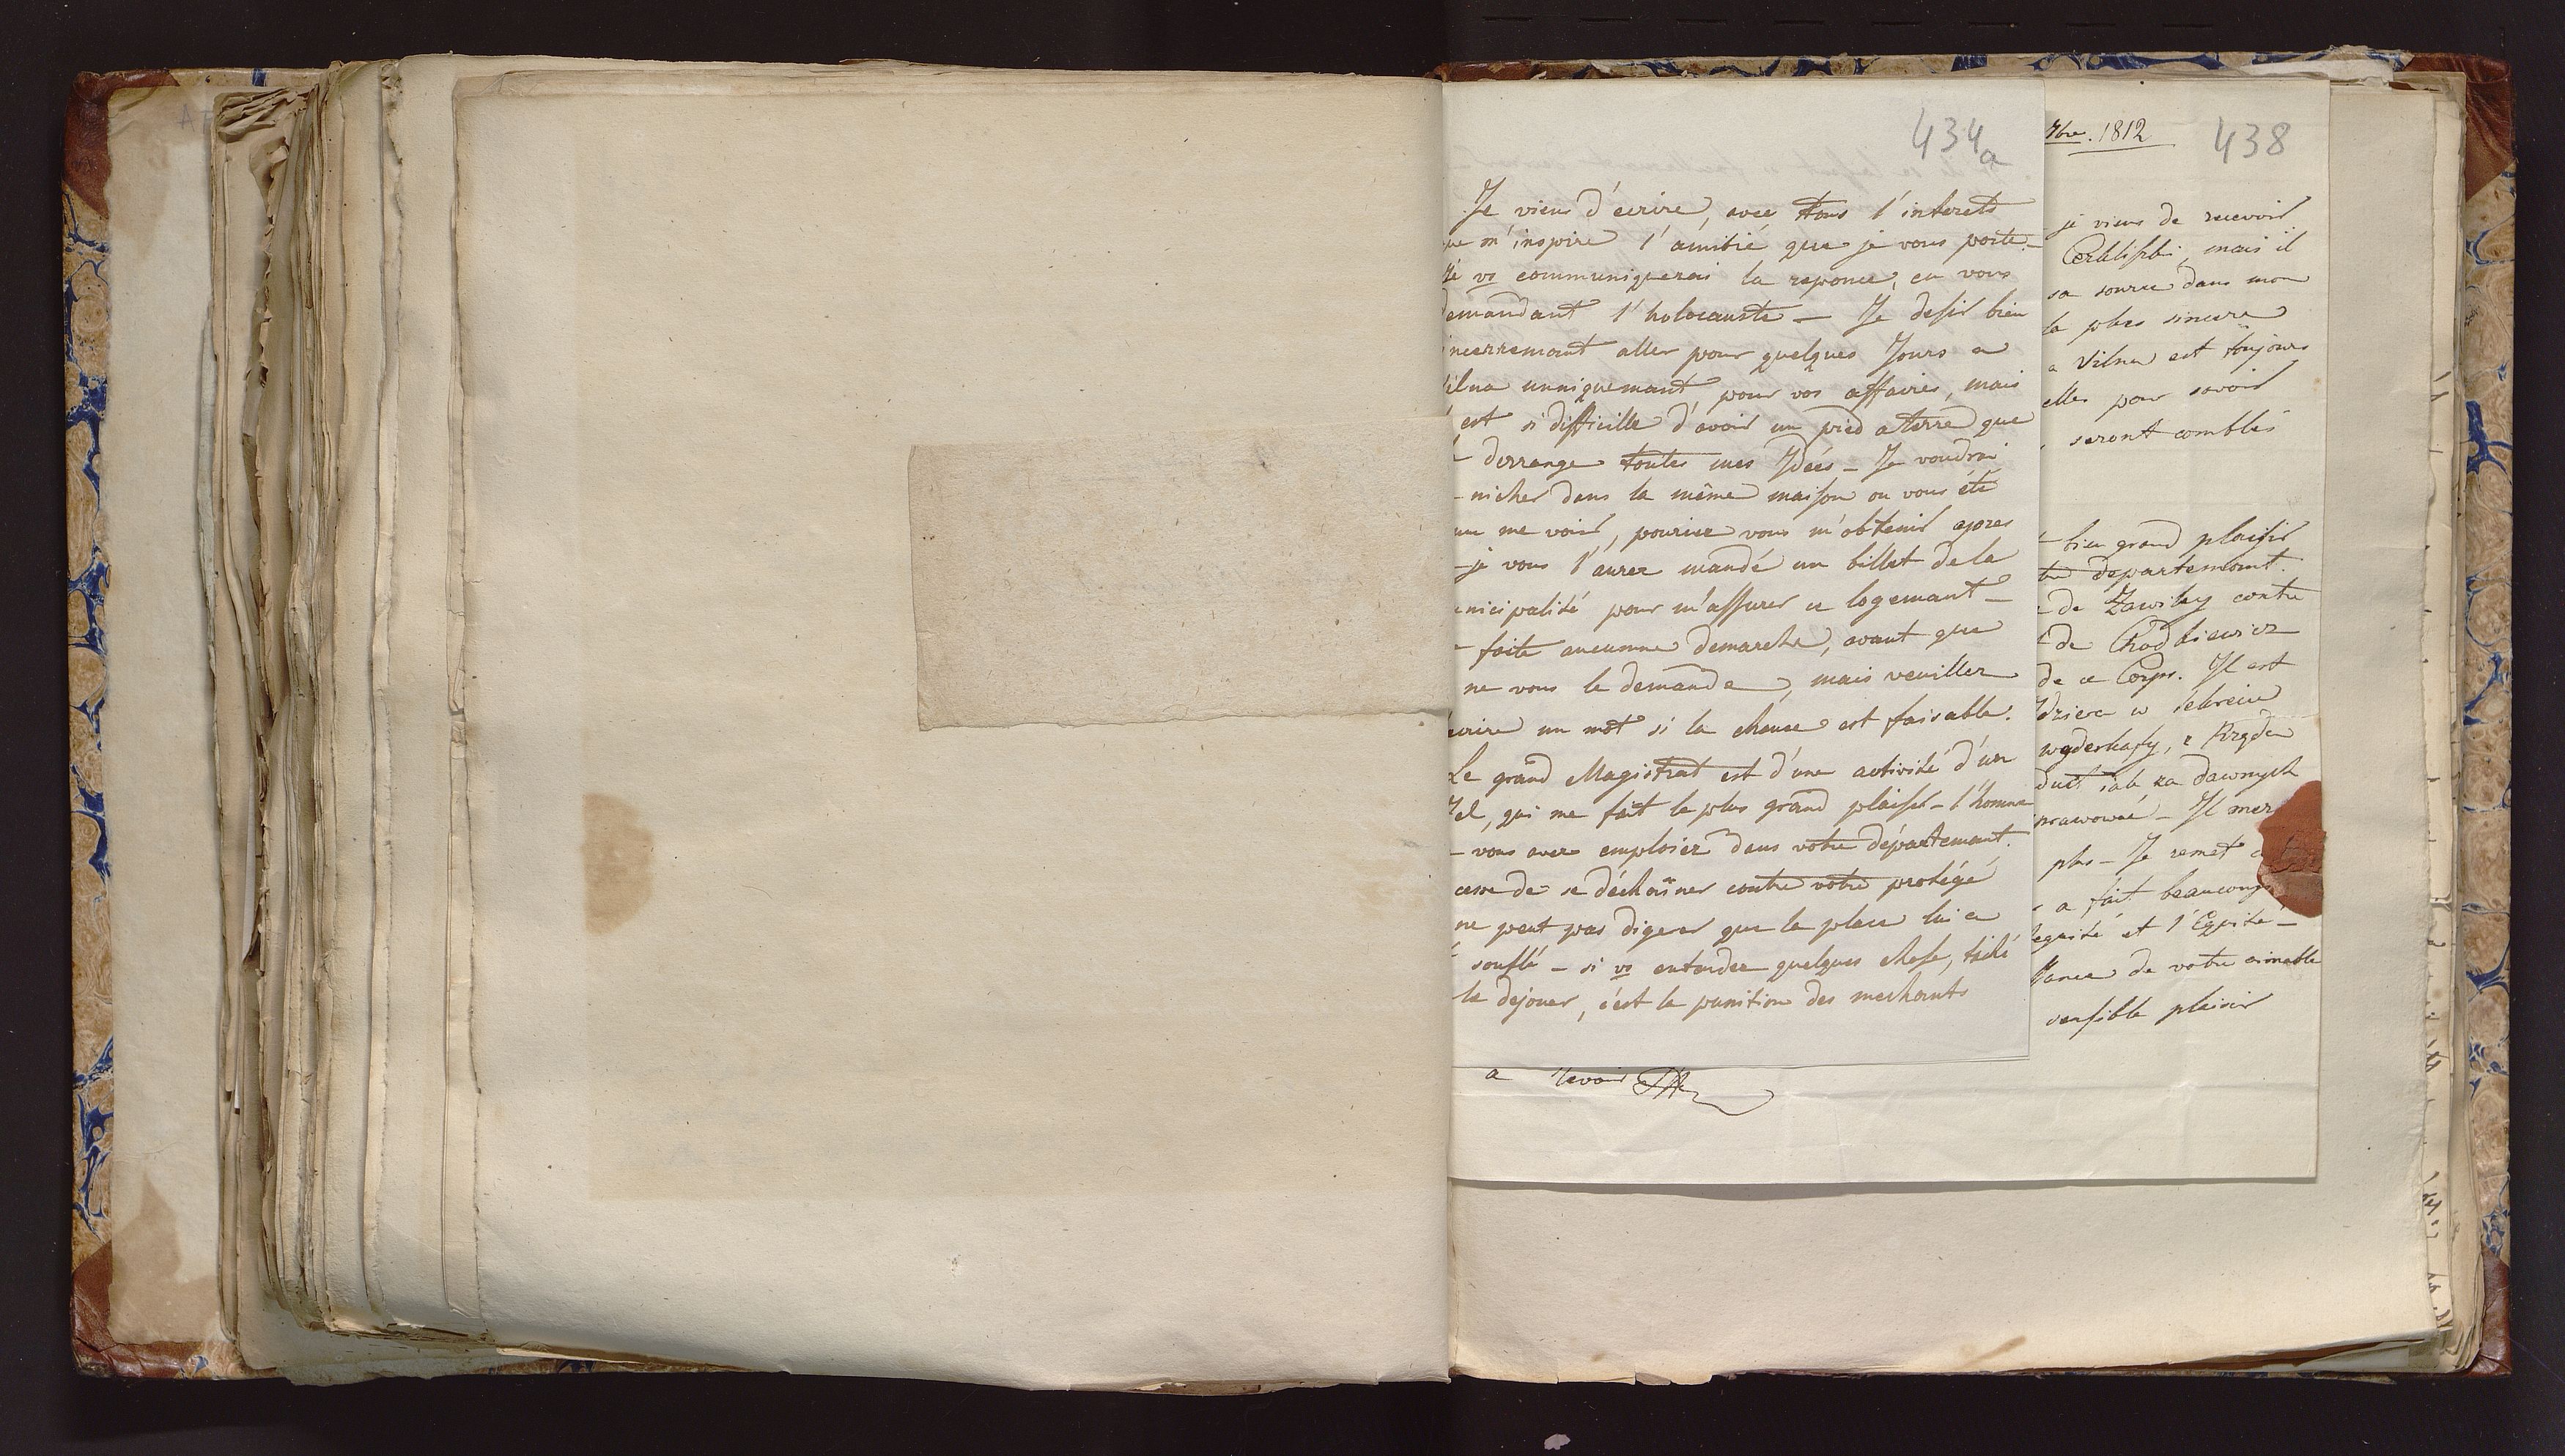 434a
Je viens d'ecrire, avec tous l'interets
ue m'inspire l'amitié que je vous porte –
vs communiquerai la reponce, en vous
emandant l'holocauste – Je desir bien
incerremant aller pour quelques Jours a
ilna unniquemant pour vos affaires, mais
est si difficille d'avoir un pied a terre que
derrange toutes mes Ydées – Je voudrai
nicher dans la même maison ou vous été
nu me voir, pouriez vous m'obtenir apres
je vous l'aurez mandé un billet de la
nicipalité pour m'assurer ce logemant –
faite aucunne demarche, avant que
ne vous le demande, mais veuillez
ecrire un mot si la chause est faisable.
Le grand Magistrat est d'une activité d'un
el, qui me fait le plus grand plaisir – l'homme
vous avez emploier dans votre départemant.
cesse de se déchaîner contre votre protégé
ne peut pas digerer que la place lui a
souflé – si vs entendez quelques chose, taché
le dejouer, c'est la punition des mechants
a revoir
7bre. 1812
438
je viens de recevoir
mais il
sa source dans mon
la plus sincere
a Vilna est toujours
elles pour savoir
seront comblés
bien grand plaisir
tre departemant.
de Zawiley contre
de Chodkiewicz
de ce Corps. Il est
w
dust iak za dawnych
prawował – Il mer
plus – Je remet a
a fait beaucoup
egrité et l'Equité –
tance de votre aimable
sensible plaisir